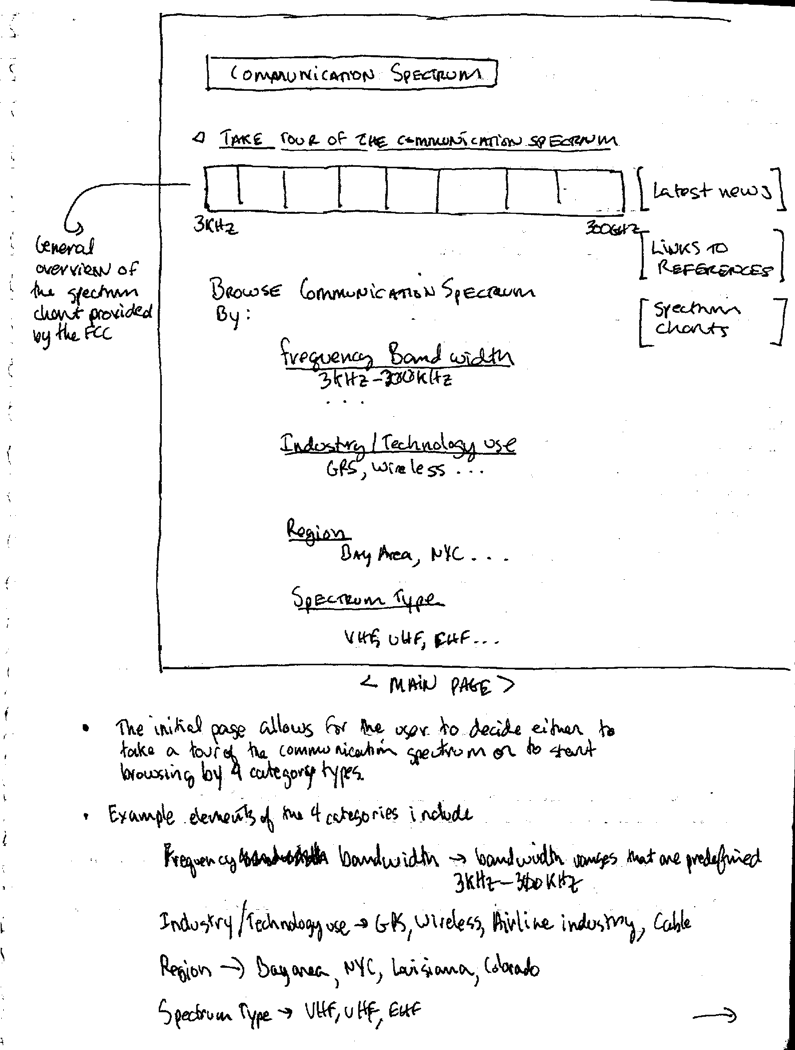 COMMUNICATION SPECTRUM
TAKE TOUR OF THE COMMUNICATION SPECTRUM
3KHz
300GHz
[Latest news]
[LINKS TO
REFERENCES]
[Spectrum
charts]
General
overview of
the spectrum
chart provided
by the FCC
BROWSE COMMUNICATION SPECTRUM
By:
Frequency Band width
3KHz-300KHz
...
Industry/Technology use
GPS, wireless ...
Region
BAY Area, NYC ...
SPECTRUM Type
VHF, UHF, EHF...
< MAIN PAGE >
• The initial page allows for the user to decide either to
take a tour of the communication spectrum or to start
browsing by 4 category types.
• Example elements of the 4 categories include
Frequency bandwidth → bandwidth ranges that are predefined
3KHz-300KHz
Industry/Technology use → GPS, Wireless, Airline industry, Cable
Region → Bay area, NYC, Luisiana, Colorado
Spectrum Type → VHF, UHF, EHF
→